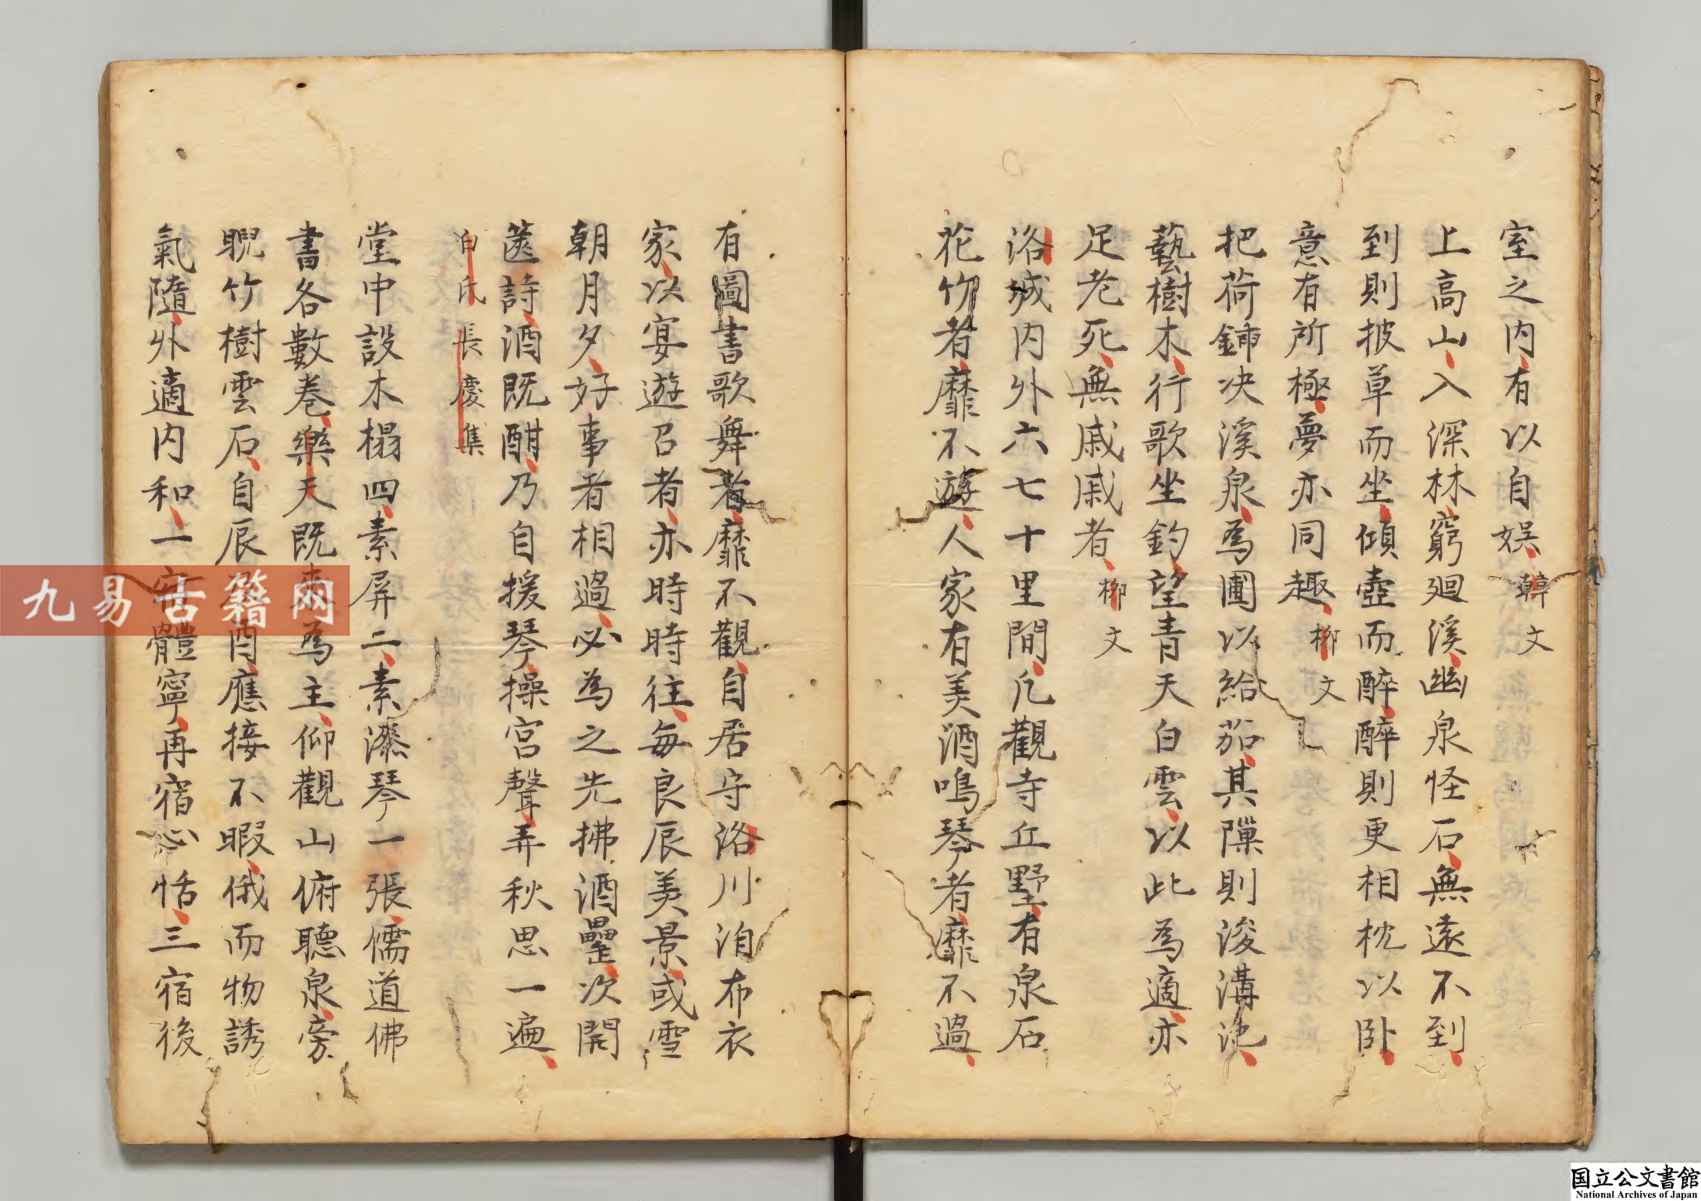 室之内有以自娱韓文
上高山入深林窮廻溪幽泉怪石無遠不到
到則披草而坐傾壺而醉醉則更相枕以卧
意有所極夢亦同趣柳文
把荷鍤决溪泉為圃以給茄其隟則浚溝池
藝樹木行歌坐釣望青天白雲以此為適亦
足老死無戚戚者柳文
洛城内外六七十里間凡觀寺丘野有泉石
花竹者靡不遊人家有美酒鳴琴者靡不過
有圖書歌舞者靡不觀自居守洛川洎布衣
家以宴遊召者亦時時往每良辰美景或雪
朝月夕好事者相過必為之先拂酒罍次開
篋詩酒既酣乃自援琴操宮聲弄秋思一遍
白氏長慶集
堂中設木榻四素屏二素漆琴一張儒道佛
書各數巻樂天既來為主仰觀山俯聽泉旁
睨竹樹雲石自辰酉應接不暇俄而物誘
氣隨外適内和一宿體寧再宿心恬三宿後
九易古籍网
国立公文書館
National Archives of Japan